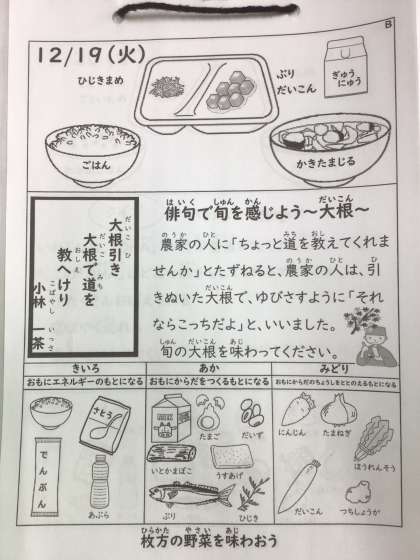 B
12/19(火)
ひじきまめ
ぶり
だいこん
ぎゅう
にゅう
ごはん
かきたまじる
俳句で旬を感じよう〜大根〜
農家の人に「ちょっと道を教えてくれま
せんか」とたずねると、農家の人は、引
きぬいた大根で、ゆびさすように「それ
ならこっちだよ」と、いいました。
旬の大根を味わってください。
大根引き
大根で道を
教へけり
小林 一茶
きいろ
おもにエネルギーのもとになる
さとう
でんぷん
あぶら
あか
おもにからだをつくるもとになる
たまご
だいず
いとかまぼこ
うすあげ
ぶり
ひじき
みどり
おもにからだのちょうしをととのえるもとになる
にんじん
たまねぎ
ほうれんそう
だいこん
つちしょうが
枚方の野菜を味わおう